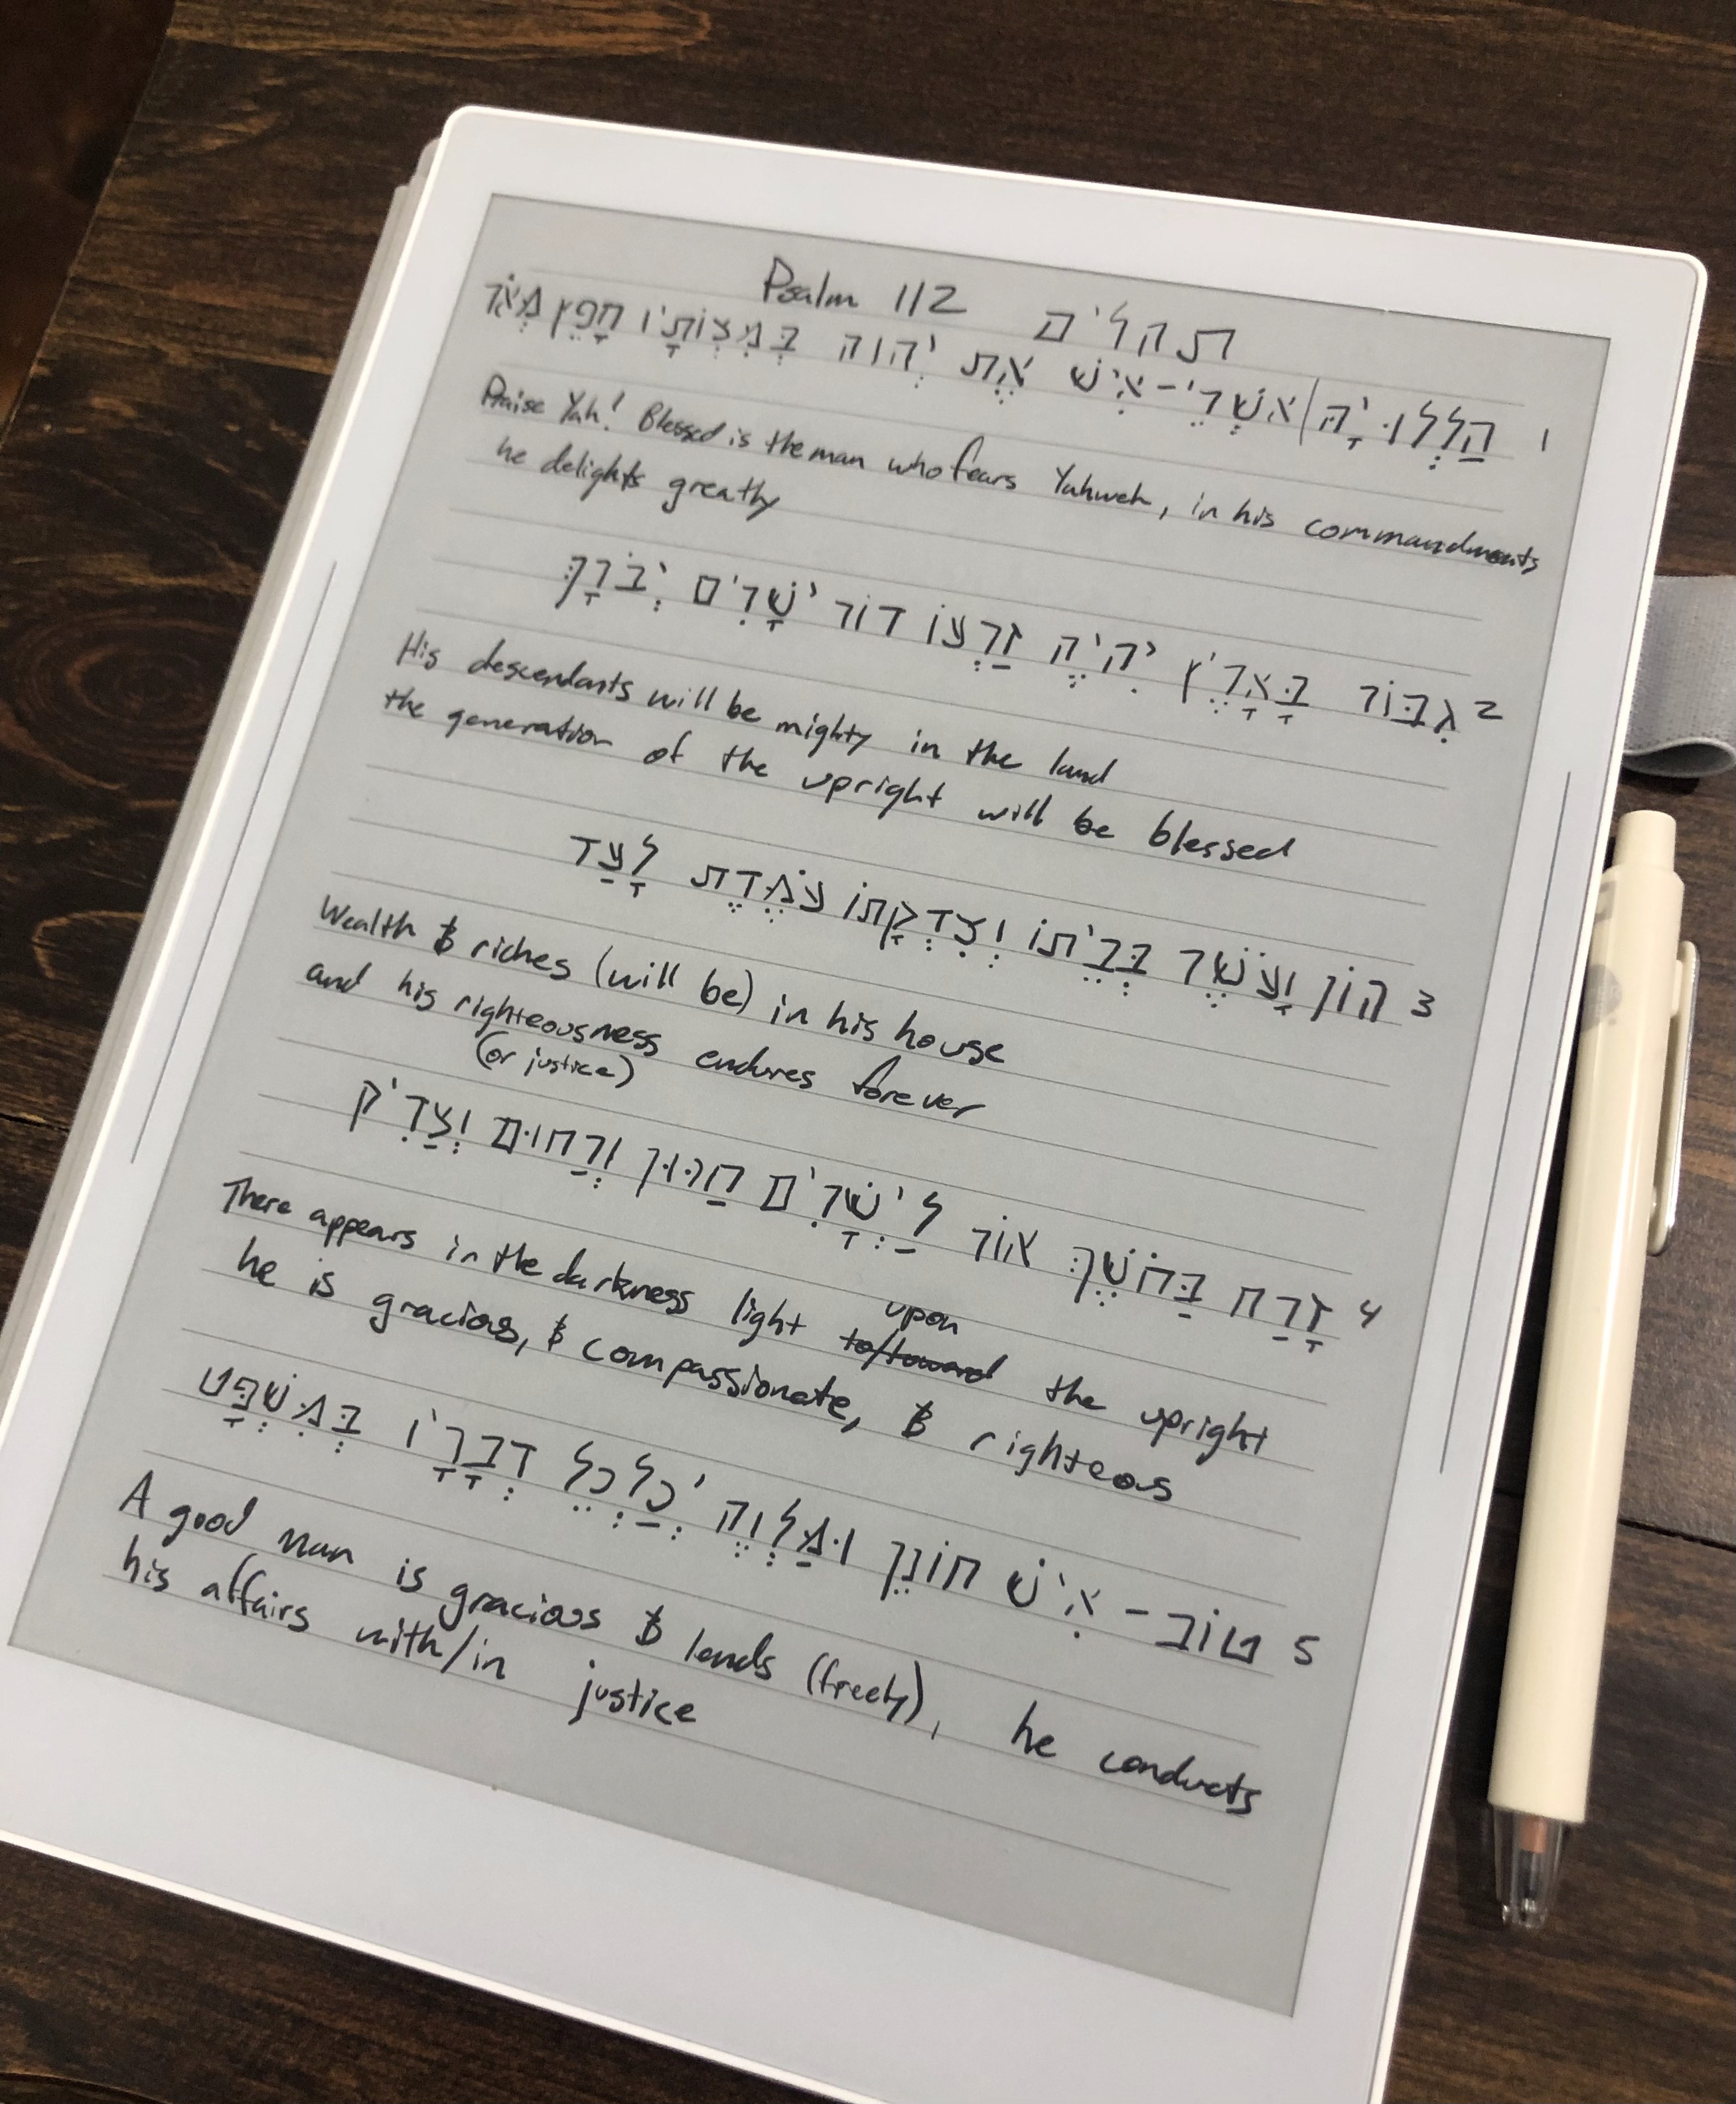 Psalm 112 תהלים
1 הַלְלוּ יָהּ|אשְׁרֵי-אִישׁ אֶת יְהוה בְּמִצְוֹתָיו חָפֵץ מְאֹד
Praise Yah! Blessed is the man who fears Yahweh, in his commandments
he delights greatly
2 גִבּוֹר בָּאָרֶץ יִהְיֶה זַרְעוֹ דוֹר יְשָׁרִים יְבֹרָךְ
His descendants will be mighty in the land
the generation of the upright will be blessed
3 הוֹן וָעֹשֶׁר בְּבֵיתוֹ וְצִדְקָתוֹ עֹמֶדֶת לָעַד
Wealth & riches (will be) in his house
and his righteousness endures forever
(or justice)
4 זָרַח בַּחֹשֶׁךְ אוֹר לַיְשָׁרִים חַנּוּן וְרַחוּם וְצַדִיק
upon
There appears in the darkness light to/toward the upright
he is gracious, & compassionate, & righteos
5 טוֹב-אִישׁ חוֹנֵן וּמַלְוֶה יְכַלְכֵל דְבָרָיו בְּמִשְׁפָּט
A good man is gracious & lends (freely), he conducts
his affairs with/in justice